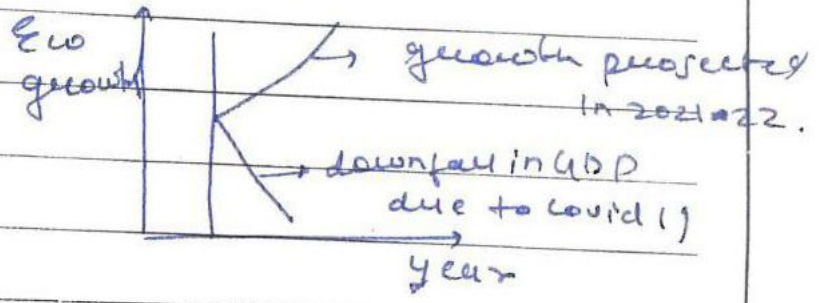 Eco
growth
growth projected
in 2021-22.
downfall in GDP
due to covid 19
year